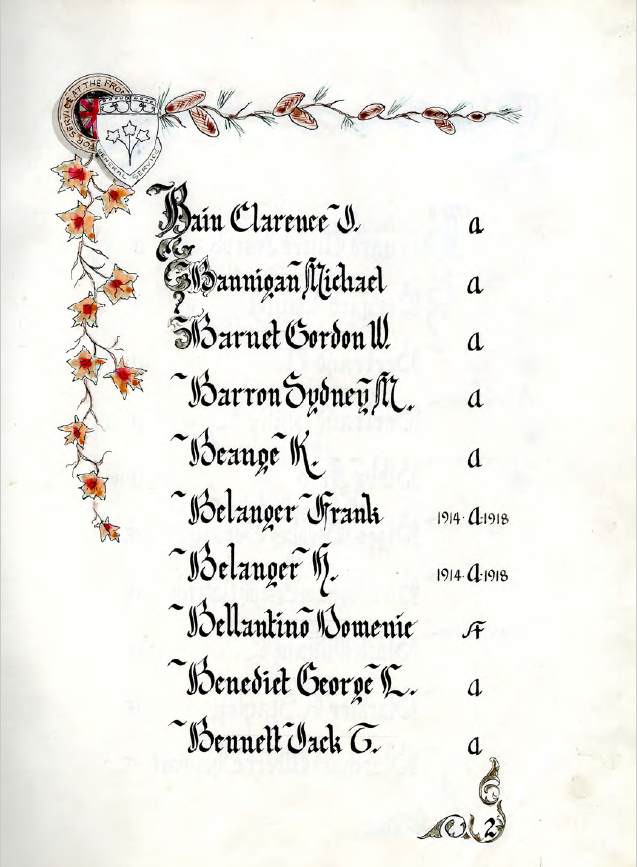 FOR SERVICE AT THE FRONT
GENERAL SERVICE
Bain Clarence J. a
Bannigan Michael a
Barnet Gordon W. a
Barron Sydney M. a
Beange K. a
Belanger Frank 1914·a·1918
Belanger H. 1914·a·1918
Bellantino Domenic AF
Benedict George L. a
Bennett Jack T. a
2